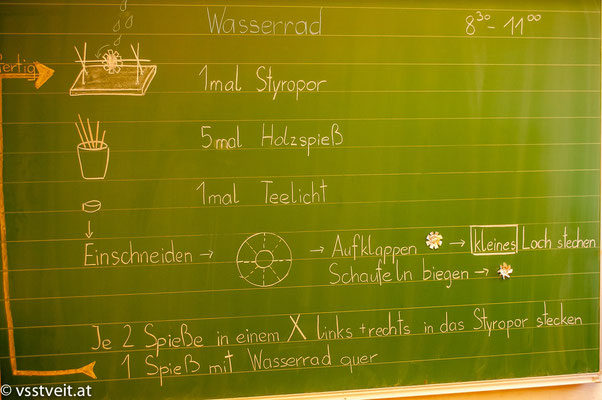 Wasserrad 8³⁰ - 11⁰⁰
fertig
1mal Styropor
5mal Holzspieß
1mal Teelicht
Einschneiden → → Aufklappen → kleines Loch stechen
Schaufeln biegen →
Je 2 Spieße in einem X links + rechts in das Styropor stecken
1 Spieß mit Wasserrad quer
© vsstveit.at